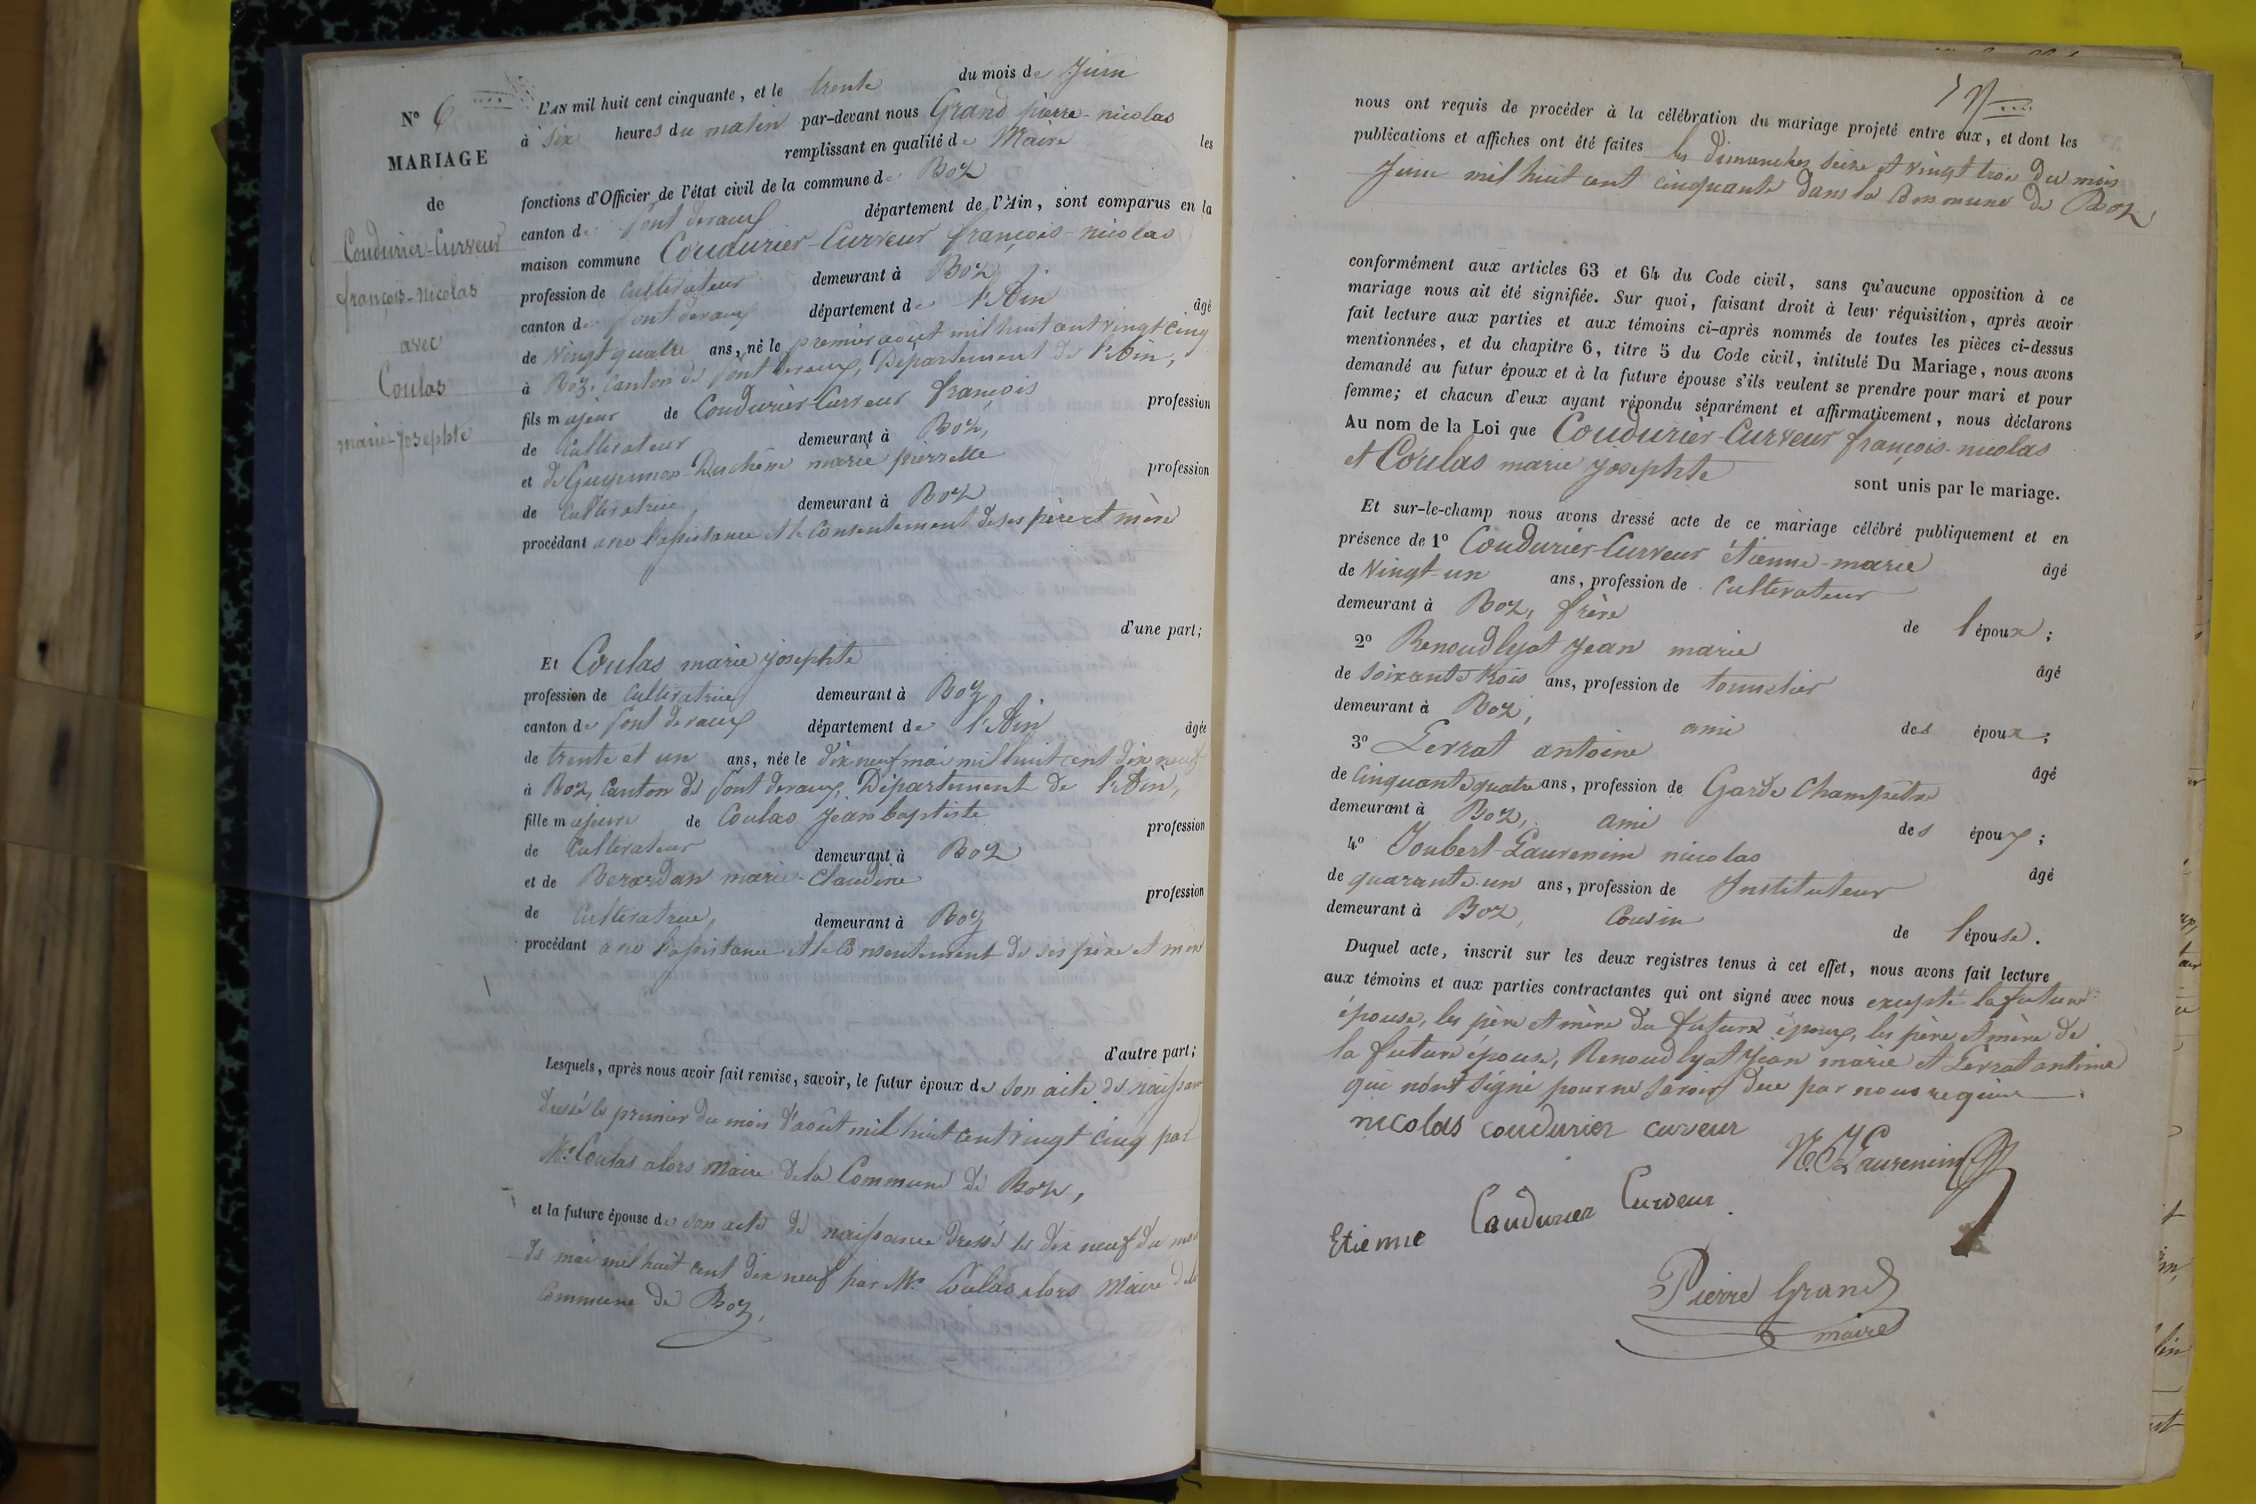 N° 6
MARIAGE
de
Coudurier-Curveur
françois-nicolas
avec
Coulas
marie-josephte
L'AN mil huit cent cinquante, et le trente du mois de Juin
à six heures du matin par-devant nous Grand pierre-nicolas
remplissant en qualité de Maire les
fonctions d'Officier de l'état civil de la commune de Boz
canton de pont devaux département de l'Ain, sont comparus en la
maison commune Coudurier-Curveur françois-nicolas
profession de Cultivateur demeurant à Boz
canton de pont devaux département de l'Ain âgé
de Vingt quatre ans, né le premier aout mil huit cent vingt cinq
à Boz, Canton de pont devaux, Département de l'Ain,
fils majeur de Coudurier-Curveur françois profession
de Cultivateur demeurant à Boz,
et de Guyennon Duchêne marie pierrette profession
de Cultivatrice, demeurant à Boz
procédant avec l'assistance et le consentement de ses père et mère
d'une part;
Et Coulas marie josephte
profession de Cultivatrice demeurant à Boz
canton de pont devaux département de l'Ain âgée
de trente et un ans, née le dix neuf mai mil huit cent dix neuf
à Boz, Canton de pont devaux, Département de l'Ain,
fille majeure de Coulas Jean baptiste profession
de Cultivateur demeurant à Boz
et de Berardan marie-Claudine profession
de Cultivatrice, demeurant à Boz
procédant avec l'assistance et le consentement de ses père et mère
d'autre part;
Lesquels, après nous avoir fait remise, savoir, le futur époux de son acte de naissance
dressé le premier du mois d'août mil huit cent vingt cinq par
Mr Coulas alors Maire de la Commune de Boz,
et la future épouse de son acte de naissance dressé le dix neuf du mois
de mai mil huit cent dix neuf par Mr Coulas alors Maire de la
Commune de Boz,
nous ont requis de procéder à la célébration du mariage projeté entre eux, et dont les
publications et affiches ont été faites les dimanches seize et vingt trois du mois
Juin mil huit cent cinquante dans la Commune de Boz
conformément aux articles 63 et 64 du Code civil, sans qu'aucune opposition à ce
mariage nous ait été signifiée. Sur quoi, faisant droit à leur réquisition, après avoir
fait lecture aux parties et aux témoins ci-après nommés de toutes les pièces ci-dessus
mentionnées, et du chapitre 6, titre 5 du Code civil, intitulé Du Mariage, nous avons
demandé au futur époux et à la future épouse s'ils veulent se prendre pour mari et pour
femme; et chacun d'eux ayant répondu séparément et affirmativement, nous déclarons
Au nom de la Loi que Coudurier-Curveur françois-nicolas
et Coulas marie josephte sont unis par le mariage.
Et sur-le-champ nous avons dressé acte de ce mariage célébré publiquement et en
présence de 1° Coudurier-Curveur étienne-marie âgé
de Vingt-un ans, profession de Cultivateur
demeurant à Boz, frère de l'époux;
2° Renoud lyat Jean marie âgé
de soixante trois ans, profession de tonnelier
demeurant à Boz, ami des époux;
3° Ferrat antoine âgé
de Cinquante quatre ans, profession de Garde Champêtre
demeurant à Boz, ami des époux;
4° Joubert-Laurencin nicolas âgé
de quarante-un ans, profession de Instituteur
demeurant à Boz, Cousin de l'épouse.
Duquel acte, inscrit sur les deux registres tenus à cet effet, nous avons fait lecture
aux témoins et aux parties contractantes qui ont signé avec nous excepté la future
épouse, les père et mère du futur époux, les père et mère de
la future épouse, Renoud lyat Jean marie et Ferrat antoine
qui n'ont signé pour ne savoir due par nous requise
nicolas coudurier curveur
N. J. Laurencin
Etienne Coudurier Curveur
Pierre Grand
maire